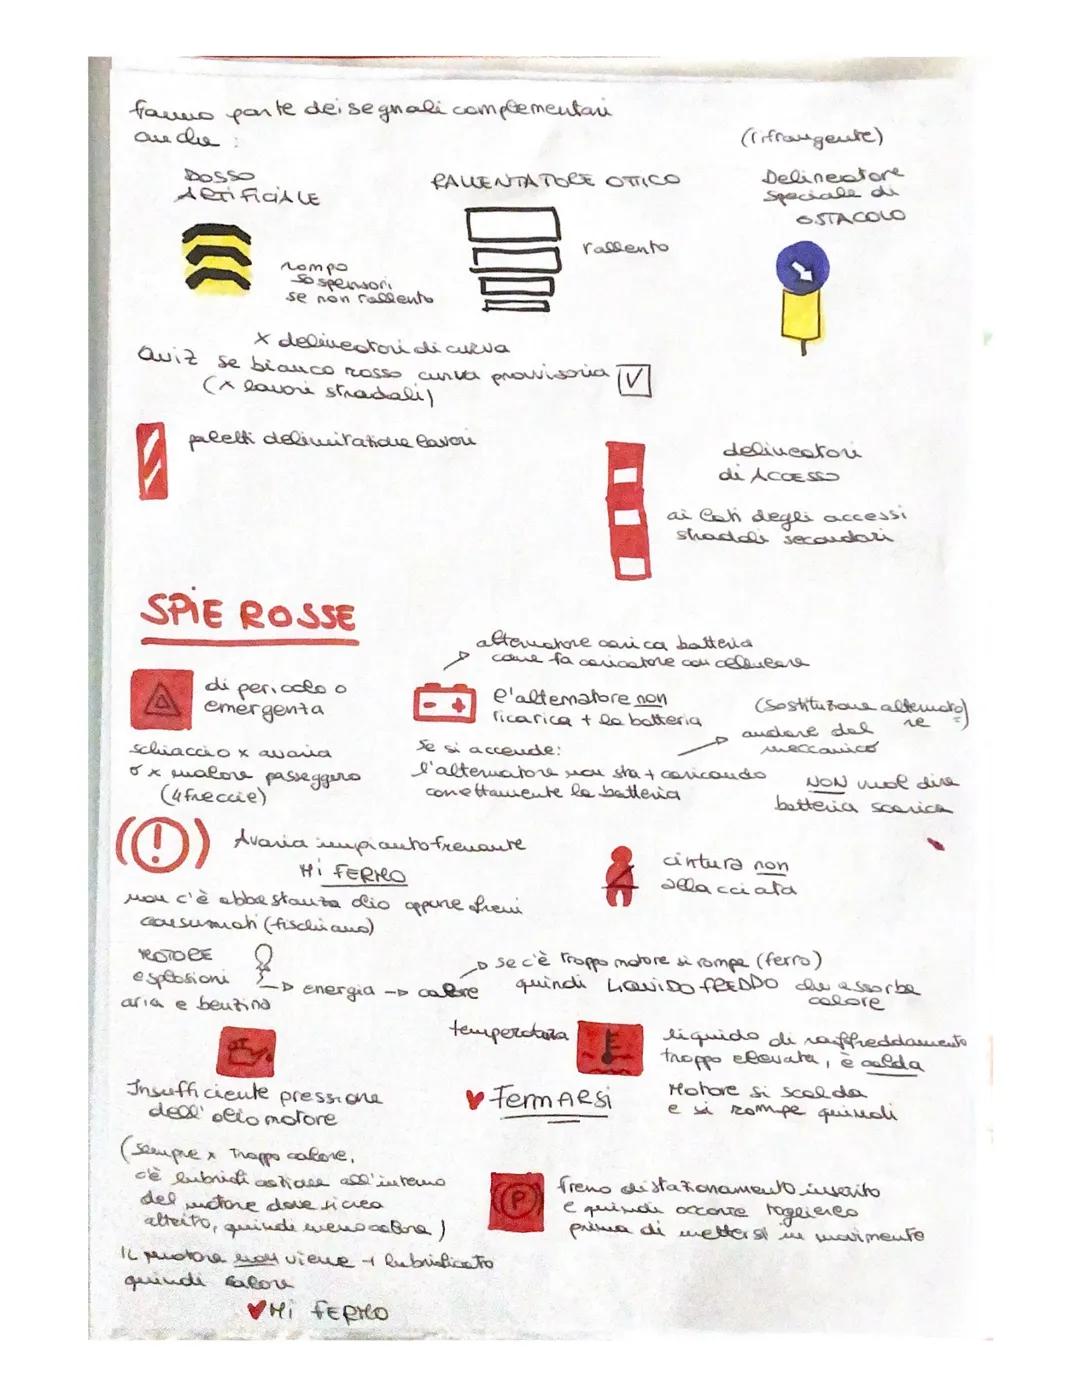 fanno parte dei segnali complementari
anche :
DOSSO
ARTIFICIALE
rompo
sospensori
se non rallento
RALLENTATORE OTTICO
rallento
(rifrangente)
Delineatore
speciale di
OSTACOLO
x delineatori di curva
Quiz se bianco rosso curva provvisoria
(x lavori stradali)
paletti delimitazione lavori
delineatori
di ACCESSO
ai lati degli accessi
stradali secondari
SPIE ROSSE
di pericolo o
emergenza
schiaccio x avaria
o x malore passeggero
(4 freccie)
alternatore carica batteria
come fa caricatore con cellulare
l'alternatore non
ricarica + la batteria
se si accende:
l'alternatore non sta + caricando
correttamente la batteria
(sostituzione alternato
re =)
andare dal
meccanico
NON vuol dire
batteria scarica
(!) Avaria impianto frenante
Mi FERMO
non c'è abbastanza olio oppure freni
consumati (fischiano)
cintura non
allacciata
MOTORE
esplosioni
aria e benzina
energia → calore
se c'è troppo motore si rompe (ferro)
quindi LIQUIDO FREDDO che assorbe
calore
Insufficiente pressione
dell'olio motore
(sempre x troppo calore,
c'è lubrificazione all'interno
del motore dove si crea
attrito, quindi meno calore)
IL motore non viene + lubrificato
quindi calore
♥Mi FERMO
temperatura
liquido di raffreddamento
troppo elevata, è calda
♥ FermARSi
Motore si scalda
e si rompe quindi
(P)
freno di stazionamento inserito
e quindi occorre toglierlo
prima di mettersi in movimento